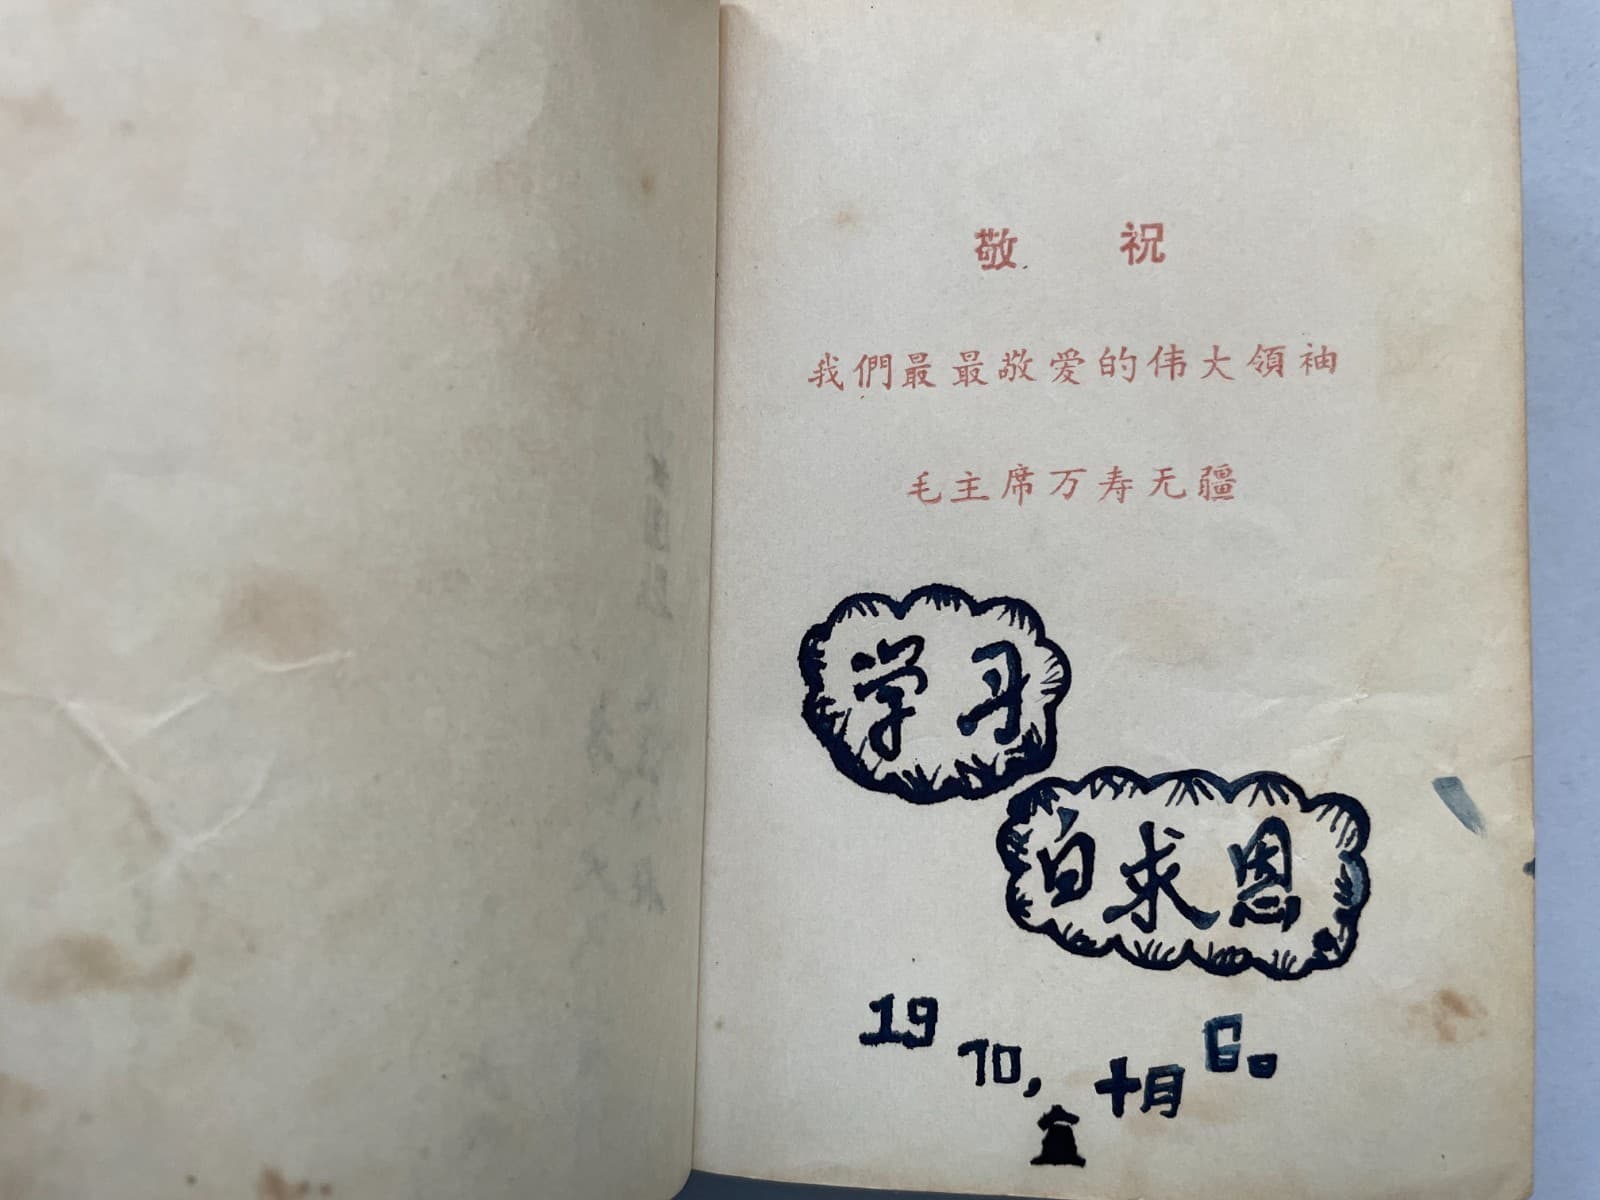 敬 祝
我們最最敬爱的伟大領袖
毛主席万寿无疆
学习
白求恩
1970, 十月6。